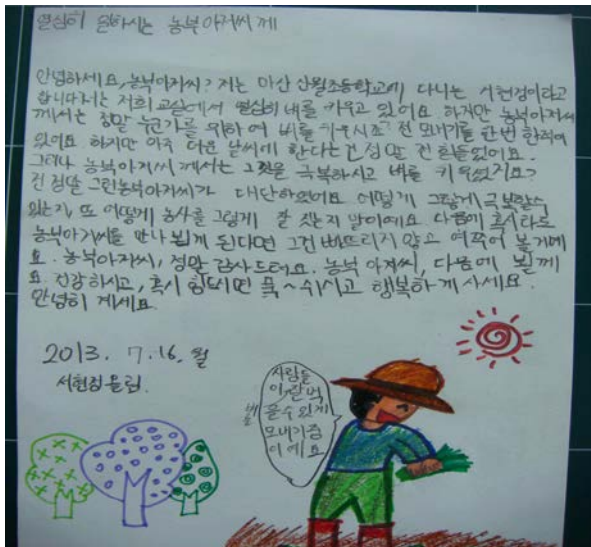 열심히 일하시는 농부아저씨께
안녕하세요, 농부아저씨? 저는 마산 산월초등학교에 다니는 서현정이라고
합니다. 저는 저희 교실에서 열심히 벼를 키우고 있어요. 하지만 농부아저씨
께서는 정말 누군가를 위하여 벼를 키우시죠? 전 모내기를 한번 한적이
있어요. 하지만 아주 더운 날씨에 한다는건 정말 전 힘들었어요.
그러나 농부아저씨께서는 그것을 극복하시고 벼를 키우셨지요?
전 정말 그런 농부아저씨가 대단하였어요. 어떻게 그렇게 극복할수
있는지, 또 어떻게 농사를 그렇게 잘 짓는지 말이에요. 다음에 혹시라도
농부아저씨를 만나 뵙게 된다면 그건 빠뜨리지 않고 여쭈어 볼거에
요. 농부아저씨, 정말 감사드려요. 농부 아저씨, 다음에 뵐께
요. 건강하시고, 혹시 힘드시면 푹~쉬시고 행복하게 사세요.
안녕히 계세요.
2013. 7. 16. 월
서현정 올림.
사람들
이 잘 먹
을수 있게
모내기중
이에요